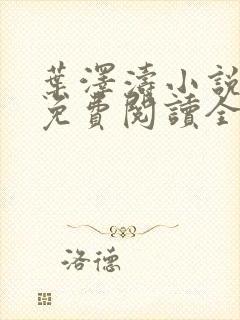 葉澤濤小說
免費閱讀全
洛德